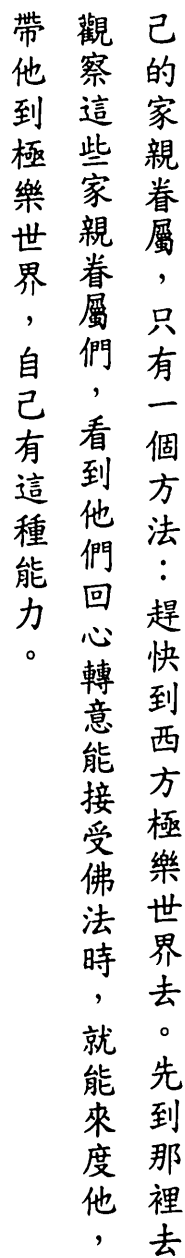 己的家親眷屬，只有一個方法：趕快到西方極樂世界去。先到那裡去
觀察這些家親眷屬們，看到他們回心轉意能接受佛法時，就能來度他，
帶他到極樂世界，自己有這種能力。